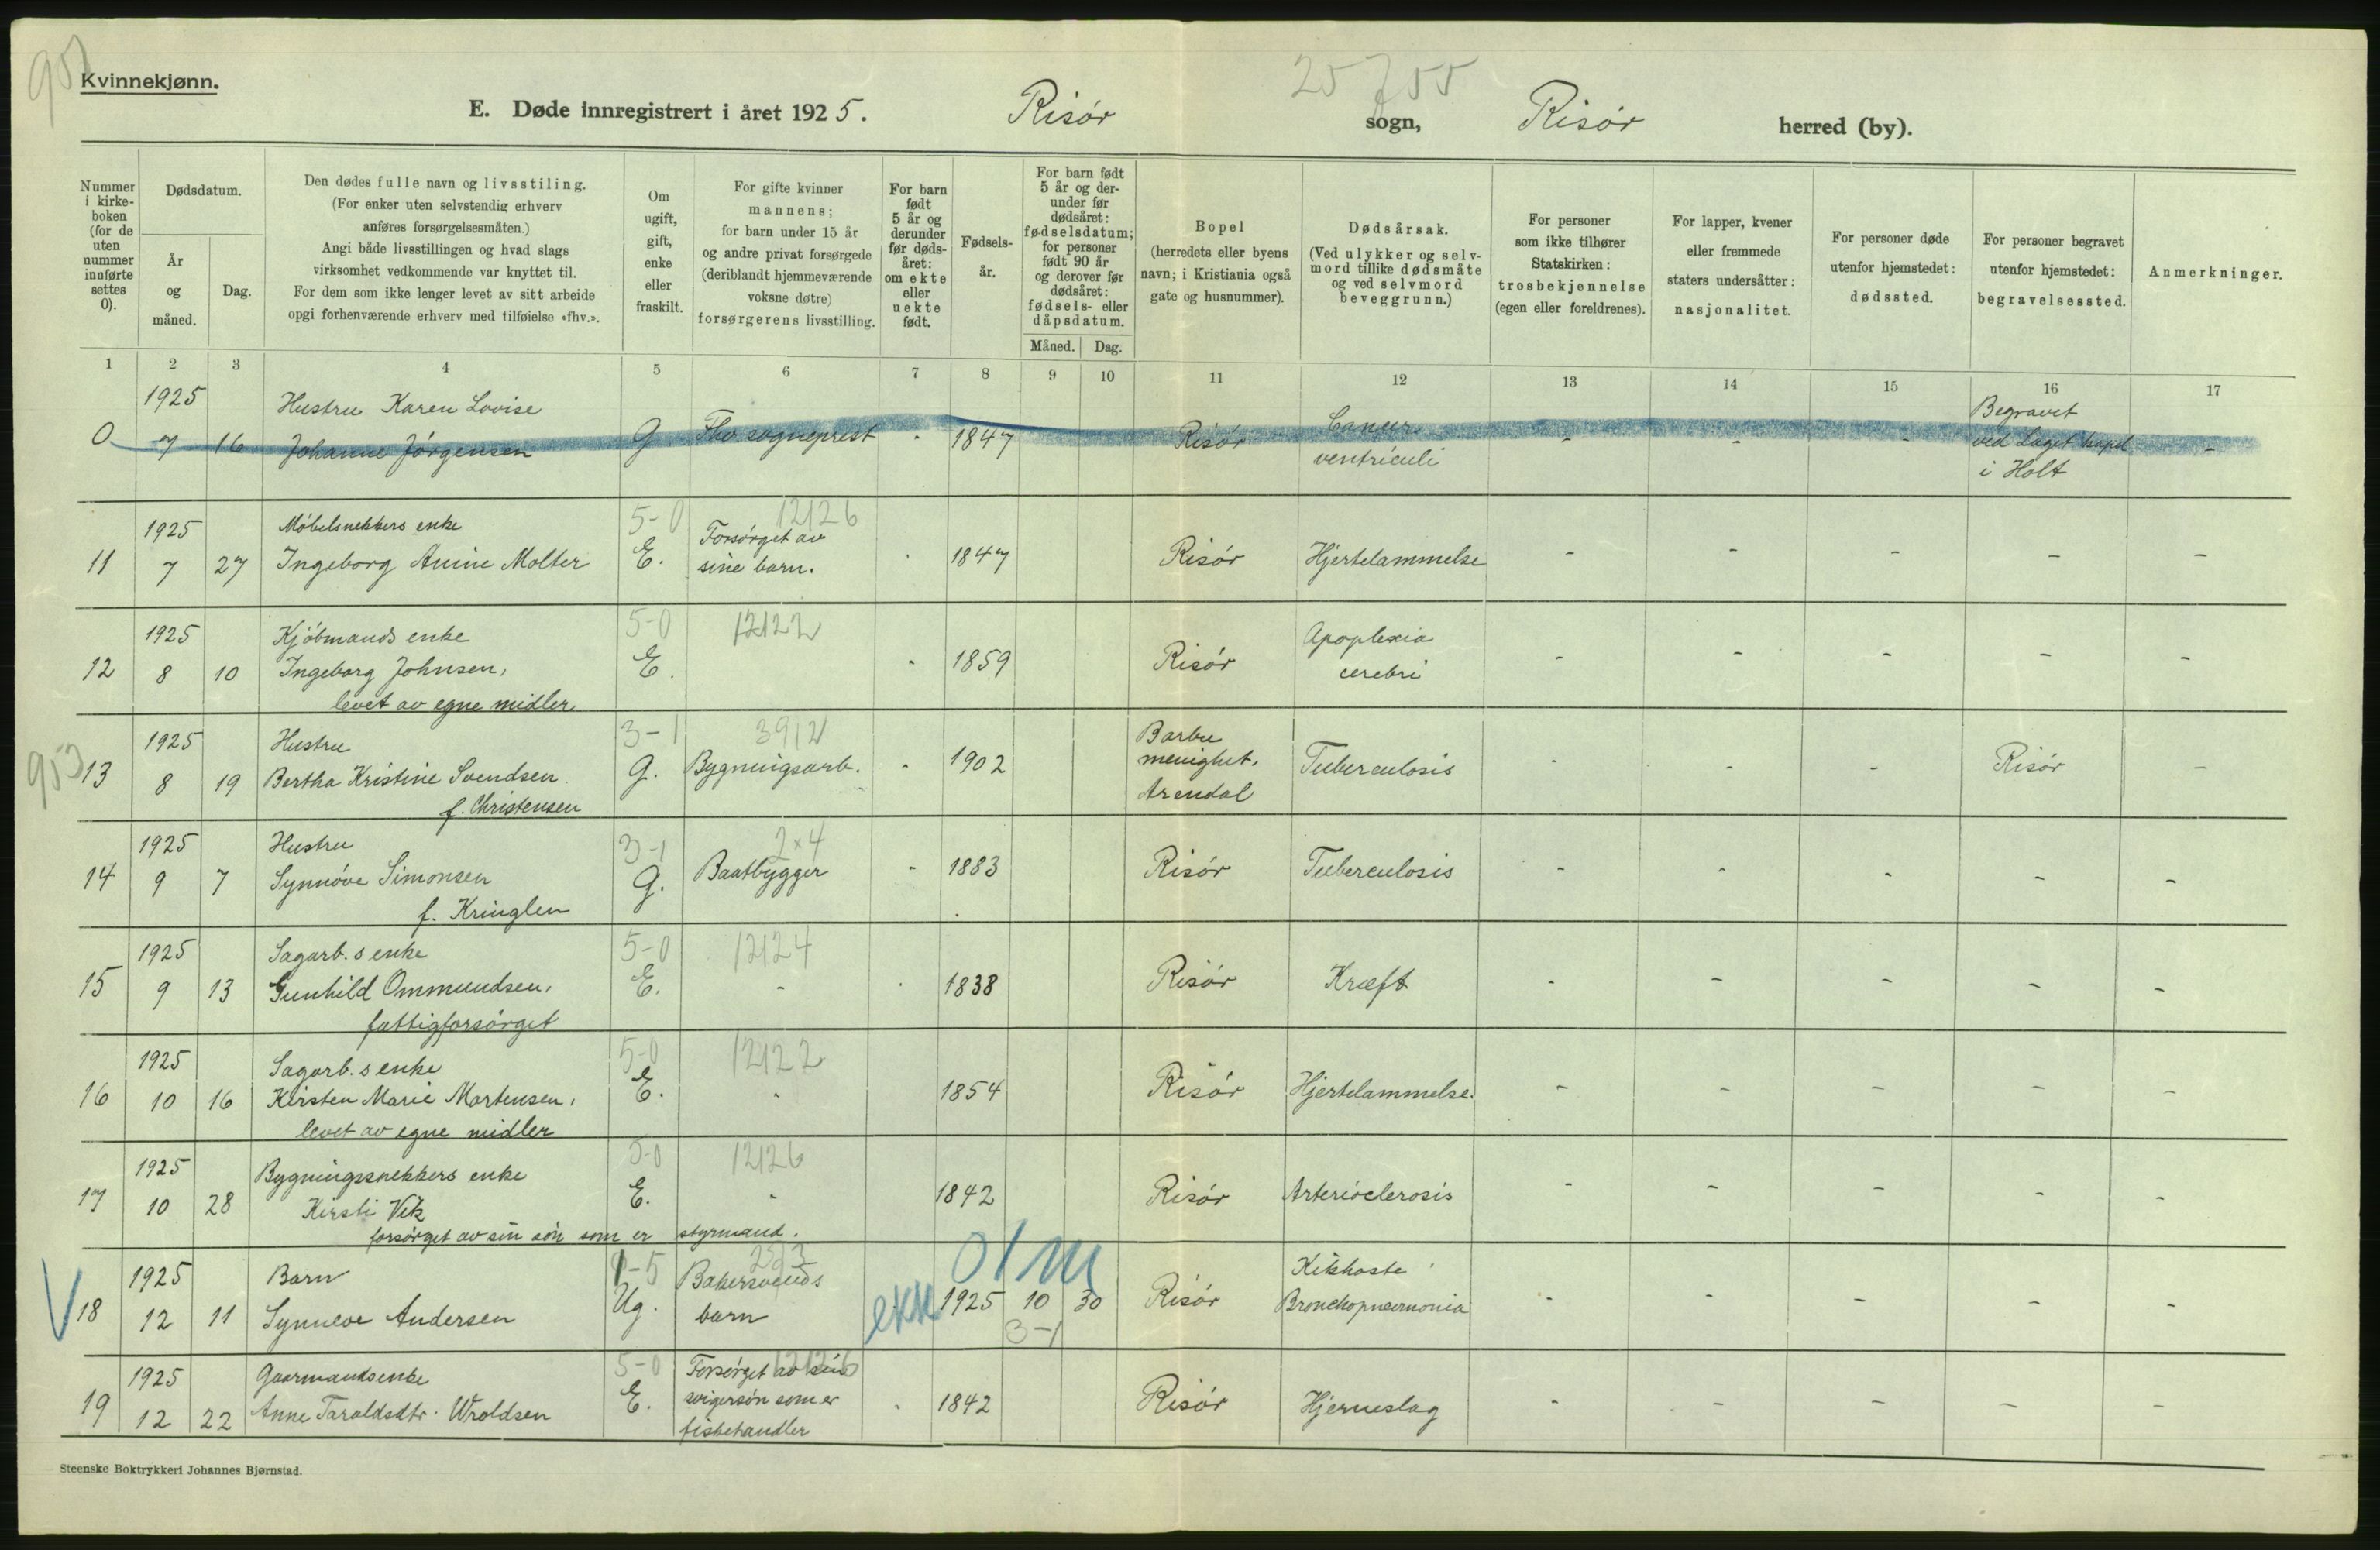 953
Kvinnekjønn.
25755
E. Døde innregistrert i året 1925. Risör sogn, Risör herred (by).
Nummer i kirkeboken (for de uten nummer innførte settes 0).
Dødsdatum.
År og måned.
Dag.
Den dødes fulle navn og livsstiling.
(For enker uten selvstendig erhverv
anføres forsørgelsesmåten.)
Angi både livsstillingen og hvad slags
virksomhet vedkommende var knyttet til.
For dem som ikke lenger levet av sitt arbeide
opgi forhenværende erhverv med tilføielse «fhv.».
Om ugift, gift, enke eller fraskilt.
For gifte kvinner
mannens;
for barn under 15 år
og andre privat forsørgede
(deriblandt hjemmeværende
voksne døtre)
forsørgerens livsstilling.
For barn født 5 år og derunder før dødsåret: om ekte eller uekte født.
Fødselsår.
For barn født 5 år og derunder før dødsåret: fødselsdatum; for personer født 90 år og derover før dødsåret: fødsels- eller dåpsdatum.
Måned. Dag.
Bopel
(herredets eller byens
navn; i Kristiania også
gate og husnummer).
Dødsårsak.
(Ved ulykker og selvmord tillike dødsmåte
og ved selvmord
beveggrunn.)
For personer
som ikke tilhører
Statskirken:
trosbekjennelse
(egen eller foreldrenes).
For lapper, kvener
eller fremmede
staters undersåtter:
nasjonalitet.
For personer døde
utenfor hjemstedet:
dødssted.
For personer begravet
utenfor hjemstedet:
begravelsessted.
Anmerkninger.
1 2 3 4 5 6 7 8 9 10 11 12 13 14 15 16 17
1925 Hustru Karen Lovise Cancer Begravet
0 7 16 Johanne Jörgensen G Fhv. sogneprest - 1847 Risör ventriculi - - - ved Laget kapel -
i Holt
1925 Möbelsnekkers enke 5-0 12126 Forsörget av
11 7 27 Ingeborg Amine Molter E. sine barn. - 1847 Risör Hjertelammelse - - - - -
1925 Kjöbmands enke 5-0 12122 Apoplexia
12 8 10 Ingeborg Johnsen, E. - 1859 Risör cerebri - - - - -
levet av egne midler
1925 Hustru 3-1 3912 Barbu
953 13 8 19 Bertha Kristine Svendsen G. Bygningsarb. - 1902 menighet, Tuberculosis - - - Risör -
f. Christensen Arendal
1925 Hustru 3-1 2x4
14 9 7 Synnöve Simonsen G. Baatbygger - 1883 Risör Tuberculosis - - - - -
f. Kringlen
1925 Sagarb.s enke 5-0 12124
15 9 13 Gunhild Ommundsen, E. - - 1838 Risör Kræft - - - - -
fattigforsörget
1925 Sagarb.s enke 5-0 12122
16 10 16 Kirsten Marie Mortensen, E. - 1854 Risör Hjertelammelse. - - - - -
levet av egne midler
1925 Bygningssnekkers enke 5-0 12126
17 10 28 Kirsti Vik E. - 1842 Risör Arterioclerosis - - - - -
forsörget av sin sön som er styrmand.
1925 Barn 1-5 Bakersvends Kikhoste
V 18 12 11 Synneve Andersen Ug. barn ekte 1925 10 30 Risör Bronchopneumonia - - - - -
3-1
1925 Gaarmandsenke 5-0 Forsörget av sin 12126
19 12 22 Anne Taraldsdtr. Wroldsen E. svigersön som er - 1842 Risör Hjerneslag - - - - -
fiskehandler
Steenske Boktrykkeri Johannes Bjørnstad.